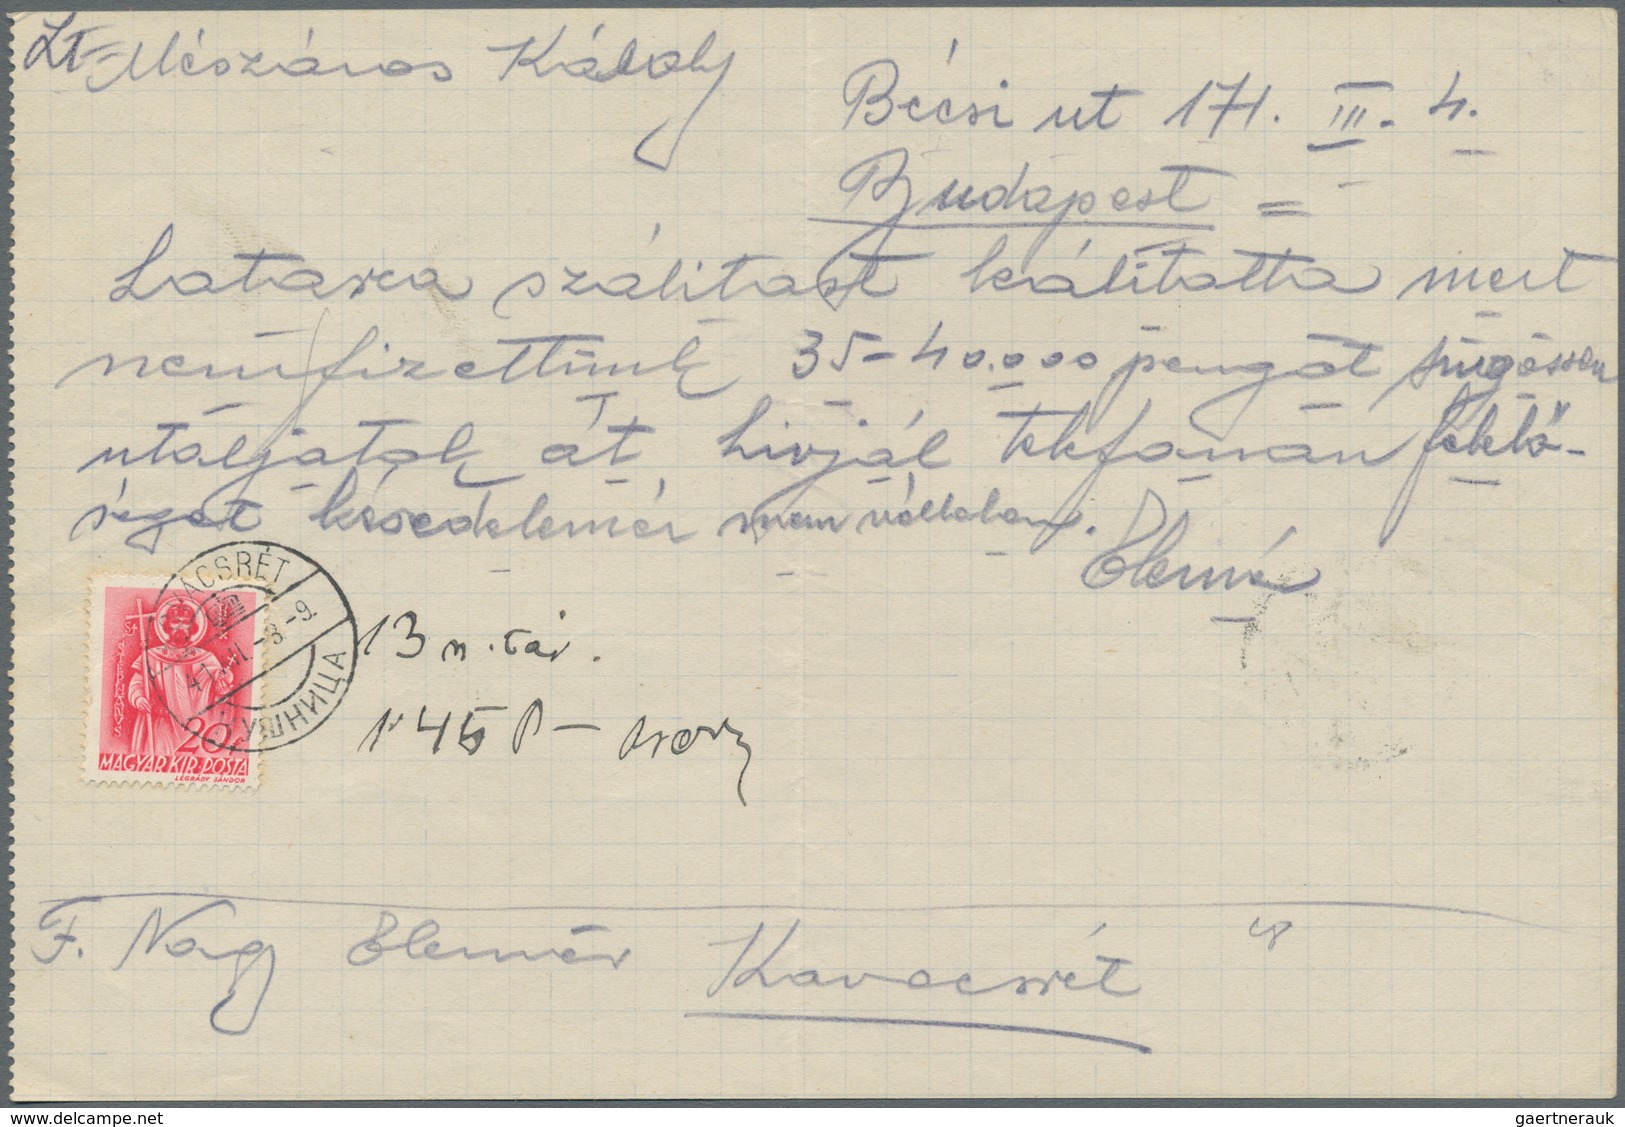 Lt= Mészáros Károly
Bécsi ut 171. III. 4.
Budapest =
Latarca szálitást leálitotta mert
nem fizettünk 35-40.000 pengőt sürgőssen
utaljatok át hivjál telefonon felelő-
séget késedelemér nem vállalom.
Elemér
KOVÁCSRÉT
41 VII. -8. -9.
20
MAGYAR KIR. POSTA
LÉGRÁDY SÁNDOR
13 n. táv.
1 45 P –
F. Nagy Elemér Kovacsrét
gaertnerauk